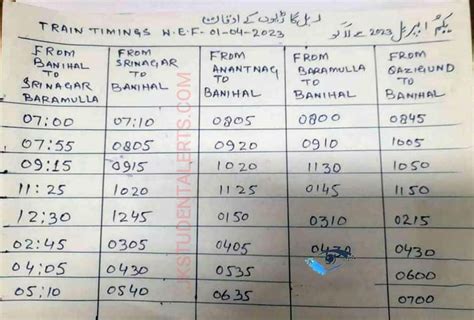 ریل گاڑیوں کے اوقات یکم اپریل 2023 سے لاگو
TRAIN TIMINGS W.E.F-01-04-2023
FROM BANIHAL TO SRINAGAR BARAMULLA
FROM SRINAGAR TO BANIHAL
FROM ANANTNAG TO BANIHAL
FROM BARAMULLA TO BANIHAL
FROM QAZIGUND TO BANIHAL
07:00 07:10 0805 0800 0845
07:55 0805 0920 0910 1005
09:15 0915 1020 1130 1050
11:25 1020 1125 0145 1150
12:30 1245 0150 0310 0215
02:45 0305 0405 0430 0430
04:05 0430 0535 0600
05:10 0540 0635 0700
JKSTUDENTALERTS.COM